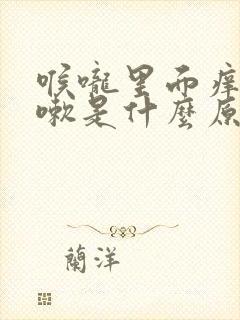 喉嚨里面痒
嗽是什麽原
蘭洋